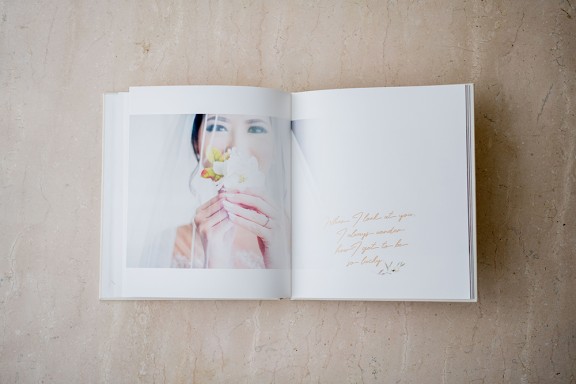 When I look at you
I always wonder
how I got to be
so lucky